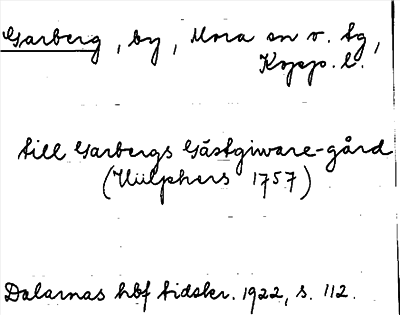 Garberg, by, Mora sn v. tg,
Kopp. l.
till Garbergs Gästgiware-gård
(Hülphers 1757)
Dalarnas hbf tidskr. 1922, s. 112.